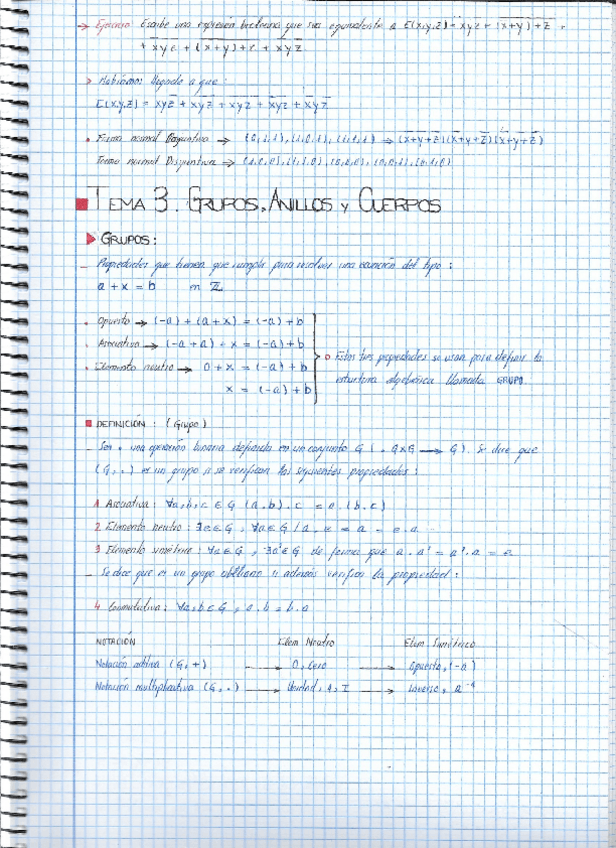 → Ejercicio: Escribe una expresión booleana que sea equivalente a E(x,y,z) =
> Habíamos llegado a que:
E(x,y,z) = xyz + xyz + xyz + xyz + xyz
• Forma normal Conjuntiva →
Forma normal Disyuntiva →
TEMA 3. GRUPOS, ANILLOS Y CUERPOS
GRUPOS:
_ Propiedades que tienen que cumplir para resolver una ecuación del tipo:
a + x = b en ℤ
• Opuesto → (-a) + (a + x) = (-a) + b
• Asociativa → (-a + a) + x = (-a) + b
• Elemento neutro → 0 + x = (-a) + b
x = (-a) + b
o Estas tres propiedades se usan para definir la
estructura algebraica llamada GRUPO.
DEFINICIÓN: (Grupo)
_ Sea • una operación binaria definida en un conjunto G (. GxG → G). Se dice que
(G, .) es un grupo si se verifican las siguientes propiedades:
1 Asociativa: ∀a,b,c ∈ G (a.b).c = a.(b.c)
2 Elemento neutro: ∃e∈G, ∀a∈G / a.e = a = e.a
3 Elemento simétrico: ∀a∈G, ∃a'∈G de forma que a.a' = a'.a = e
_ Se dice que es un grupo abeliano si además verifica la propiedad:
4 Conmutativa: ∀a,b∈G, a.b = b.a
NOTACIÓN Elem. Neutro Elem. Simétrico
Notación aditiva (G, +) → 0, Cero → Opuesto, (-a)
Notación multiplicativa (G, .) → Unidad, 1, I → Inverso, a⁻¹